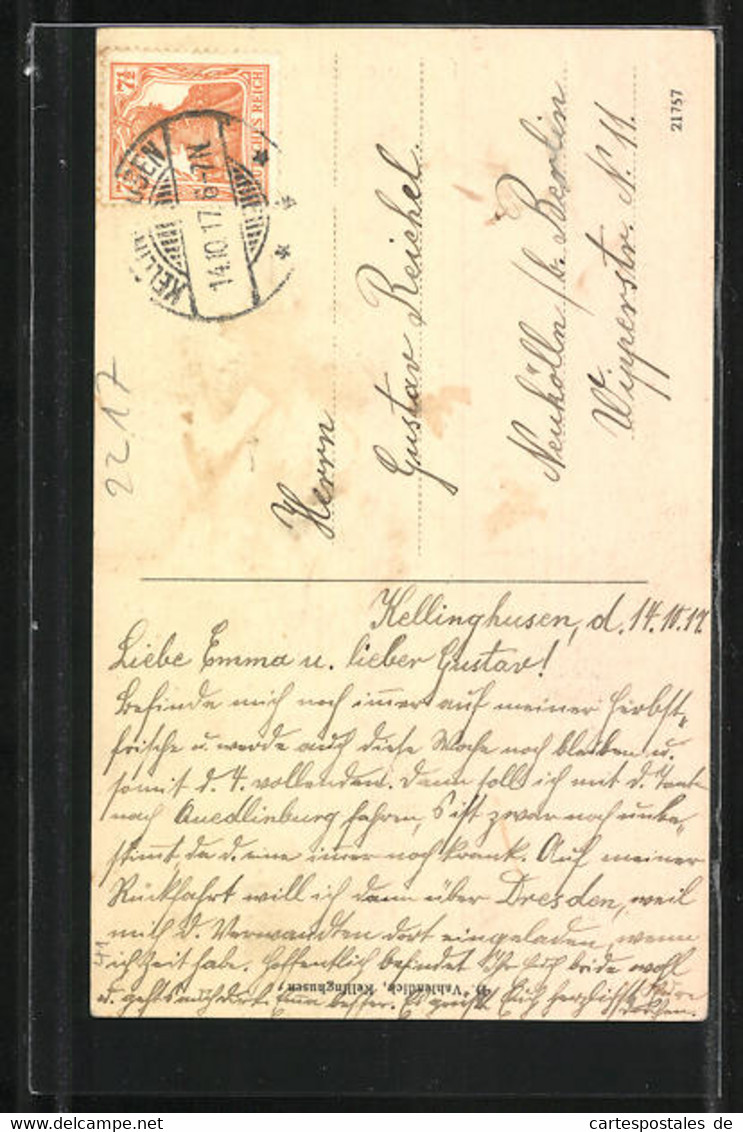 7½
DEUTSCHES REICH
KELLINGHUSEN
14.10.17. 6-7N
21757
22 17
Herrn
Gustav Reichel
Neukölln /b. Berlin
Wipperstr. N. 11.
Kellinghusen, d. 14.10.17.
Liebe Emma u. lieber Gustav!
Befinde mich noch immer auf meiner Herbst-
frische u. werde auch diese Woche noch bleiben u.
somit d. 4. vollenden. Dann soll ich mit d. Tante
nach Quedlinburg fahren, s ist zwar noch unbe-
stimmt, da d. eine immer noch krank. Auf meiner
Rückfahrt will ich dann über Dresden, weil
mich d. Verwandten dort eingeladen, wenn
ich Zeit habe. Hoffentlich befindet Ihr Euch beide wohl
u. geht's auch dort Emma besser. Es grüßt Euch herzlichst
H. Vahlendick, Kellinghusen
delcampe.net
cartespostales de